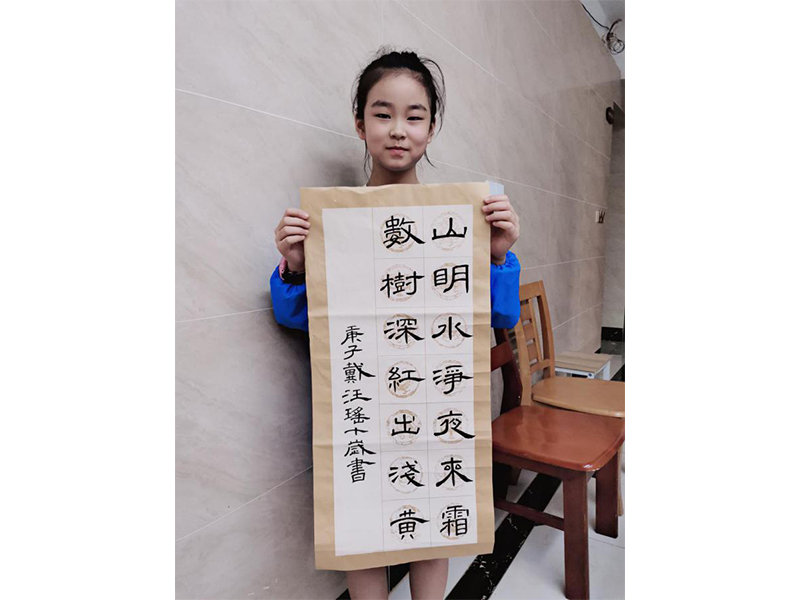 山明水淨夜來霜
數樹深紅出淺黄
庚子戴汪瑤十歲書